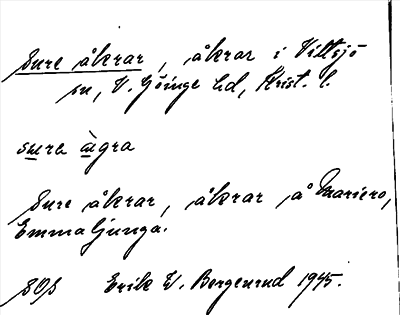 Sure åkrar, åkrar i Vittsjö
sn, V. Göinge hd, Krist. l.
sure ågra
Sure åkrar, åkrar å Mariero,
Emmaljunga.
SOS Erik W. Bergenrud 1945.